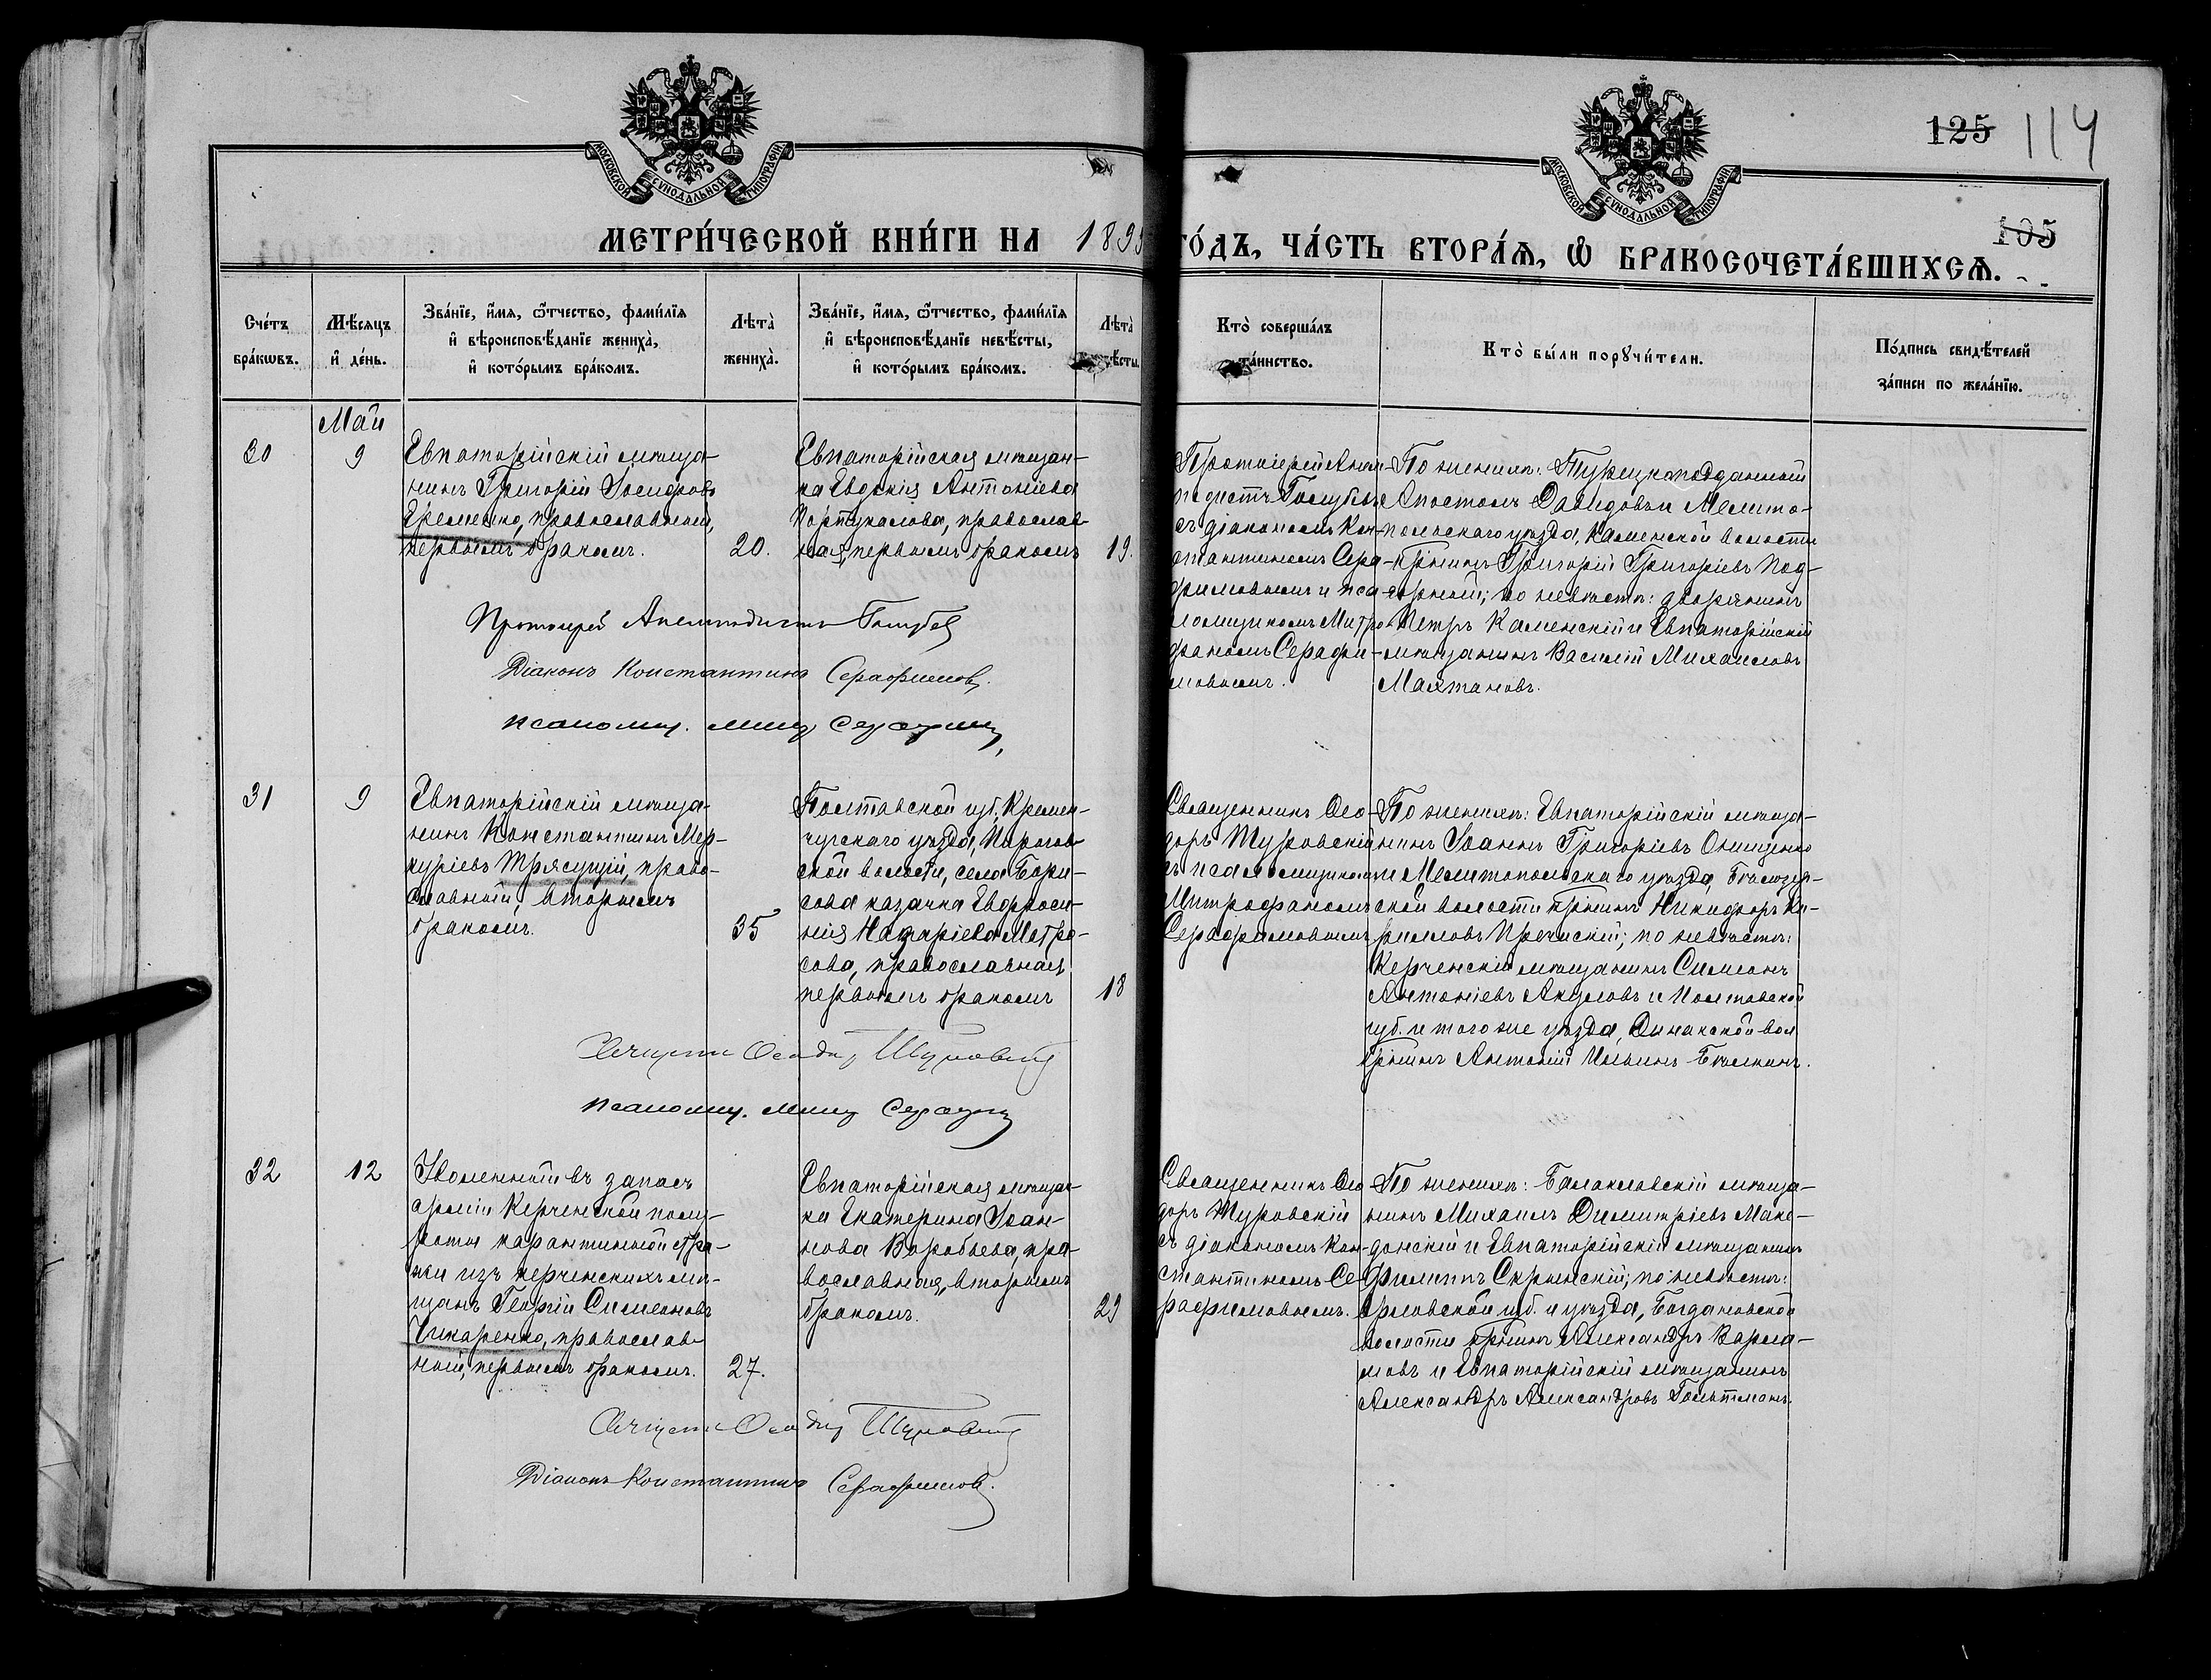 МОСКОВСКОЙ СѴНОДАЛЬНОЙ ТИПОГРАФІИ
МОСКОВСКОЙ СѴНОДАЛЬНОЙ ТИПОГРАФІИ
125 114
105
МЕТРИ́ЧЕСКОЙ КНИ́ГИ НА 1899
ГО́ДЪ, ЧА́СТЬ ВТОРА́Ѧ, Ѡ БРАКОСОЧЕТА́ВШИХСѦ.
Сче́тъ
бра́кѡвъ.
Мѣ́сяцъ
и҆ де́нь.
Зва́нїе, и҆́мя, ѻ҆́тчество, фами́лїя
и҆ вѣроисповѣ́данїе жениха̀,
и҆ кото́рымъ бра́комъ.
Лѣта̀
жениха̀.
Зва́нїе, и҆́мя, ѻ҆́тчество, фами́лїя
и҆ вѣроисповѣ́данїе невѣ́сты,
и҆ кото́рымъ бра́комъ.
Лѣта̀
невѣ́сты.
Кто̀ соверша́лъ
та́инство.
Кто̀ бы́ли порꙋчи́тели.
По́дпись свидѣ́телей
за́писи по жела́нїю.
Май
30
9
Евпаторійскій мѣща-
нинъ Григорій Іосифовъ
Еременко, православный,
первымъ бракомъ.
20.
Евпаторійская мѣщан-
ка Евдокія Антоніева
Португалова, православ-
ная, первымъ бракомъ
19.
Протоіерей Анем-
подистъ Голубевъ
съ діакономъ Кон-
стантиномъ Сера-
фимовымъ и пса-
ломщикомъ Митро-
фаномъ Серафи-
мовымъ.
По женихѣ: Турецкоподданный
Апостолъ Давидовъ и Мелито-
польскаго уѣзда, Каменской волости
кр-нинъ Григорій Григоріевъ Под-
горный; по невѣстѣ: дворянинъ
Петръ Каменскій и Евпаторійскій
мѣщанинъ Василій Михаиловъ
Малтановъ.
Протоіерей Анемподистъ Голубевъ
Діаконъ Константинъ Серафимовъ.
псаломщ. Митр Серафим
31
9
Евпаторійскій мѣща-
нинъ Константинъ Мер-
куріевъ Трясущій, право-
славный, вторымъ
бракомъ.
35
Полтавской губ. Кремен-
чугскаго уѣзда, Пирогов-
ской волости, села Бори-
сова казачка Евфроси-
нія Назаріева Матро-
сова, православная
первымъ бракомъ
18
Священникъ Ѳео-
доръ Туровскій
съ псаломщикомъ
Митрофаномъ
Серафимовымъ
По женихѣ: Евпаторійскій мѣща-
нинъ Іоаннъ Григоріевъ Онищенко
и Мелитопольскаго уѣзда, Бѣлозер-
ской волости кр-нинъ Никифоръ Ки-
рилловъ Пречискій; по невѣстѣ:
Керченскій мѣщанинъ Симеонъ
Антоніевъ Акуловъ и Полтавской
губ. и того же уѣзда, вол
кр-нинъ Антоній Ильинъ
Священ Ѳеодоръ Туровскій
псаломщ. Митр Серафим
32
12
Уволенный въ запасъ
арміи Керченской полу-
роты карантинной стра-
жи изъ керченскихъ мѣ-
щанъ Георгій Симеоновъ
Чикаренко, православ-
ный, первымъ бракомъ.
27.
Евпаторійская мѣщан-
ка Екатерина Іоан-
нова Воробьева, пра-
вославная, вторымъ
бракомъ.
29
Священникъ Ѳео-
доръ Туровскій
съ діакономъ Кон-
стантиномъ Се-
рафимовымъ.
По женихѣ: Балаклавскій мѣща-
нинъ Михаилъ Димитріевъ Маке-
донскій и Евпаторійскій мѣщанинъ
Филиппъ Скрынскій; по невѣстѣ:
Орловской губ. и уѣзда, Богдановской
волости кр-нинъ Александръ Варла-
мовъ и Евпаторійскій мѣщанинъ
Александръ Александровъ Гольтманъ.
Священ Ѳеодоръ Туровскій
Діаконъ Константинъ Серафимовъ.